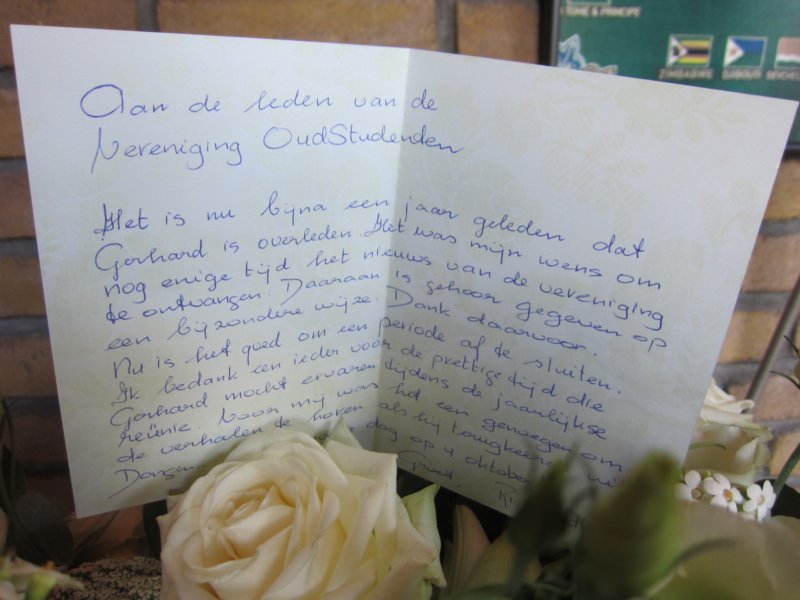 Aan de leden van de
Vereniging OudStudenten
Het is nu bijna een jaar geleden dat
Gerhard is overleden. Het was mijn wens om
nog enige tijd het nieuws van de vereniging
te ontvangen. Daaraan is gehoor gegeven op
een bijzondere wijze. Dank daarvoor.
Nu is het goed om een periode af te sluiten.
Ik bedank een ieder voor de prettige tijd die
Gerhard mocht ervaren tijdens de jaarlijkse
reünie. Voor mij was het een genoegen om
de verhalen te horen als hij terugkeerde uit
Dongen. dag op 4 oktober
Groet,
TOME & PRINCIPE
ZIMBABWE
DJIBOUTI